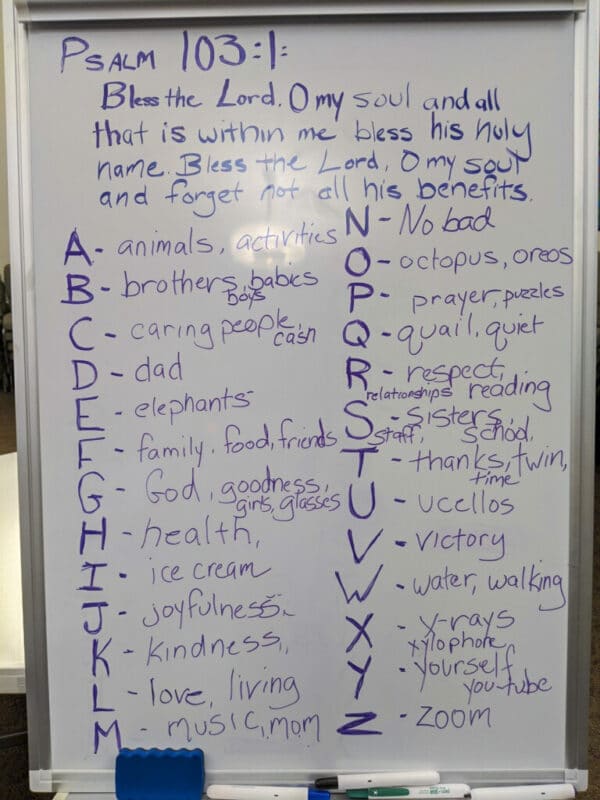 PSALM 103:1:
Bless the Lord, O my soul and all
that is within me bless his holy
name. Bless the Lord, O my soul
and forget not all his benefits.
A- animals, activities
B- brothers, babies
boys
C- caring people,
cash
D- dad
E- elephants
F- family, food, friends
G- God, goodness,
girls, glasses
H- health,
I- ice cream
J- joyfulness
K- kindness,
L- love, living
M- music, mom
N- No bad
O- octopus, oreos
P- prayer, puzzles
Q- quail, quiet
R- respect,
relationships reading
S- sisters,
staff, school,
T- thanks, twin,
time
U- ucellos
V- victory
W- water, walking
X- x-rays
xylophone
Y- yourself
you-tube
Z- zoom